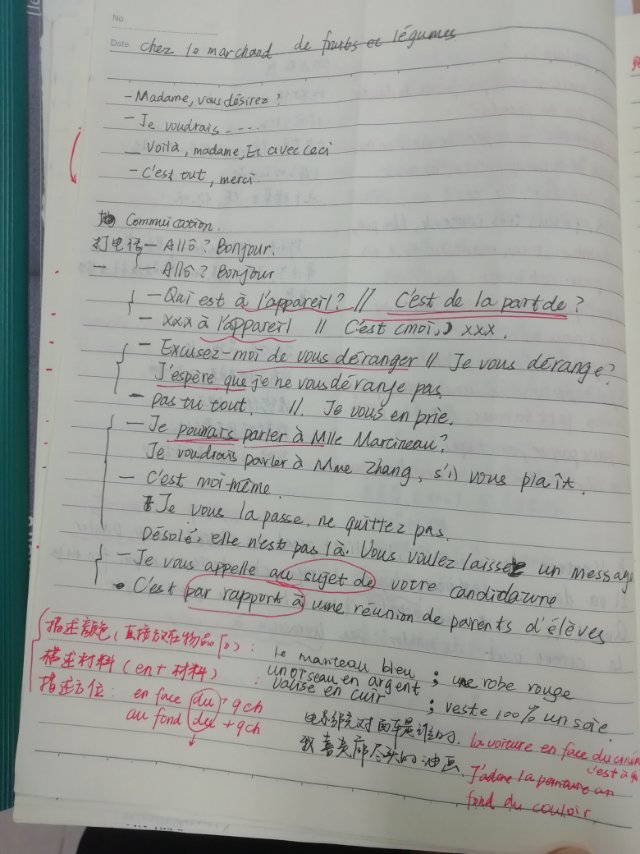 No.
Date chez le marchand de fruits et légumes
- Madame, vous désirez ?
- Je voudrais - - ...
- Voilà, madame, Et avec ceci
- C'est tout, merci.
Communication.
打电话 - Allô ? Bonjour.
- - Allô ? Bonjour
- Qui est à l'appareil ? // C'est de la part de ?
- xxx à l'appareil // C'est (moi,) xxx.
- Excusez-moi de vous déranger // Je vous dérange ?
J'espère que je ne vous déranje pas.
- pas tu tout. // Je vous en prie.
- Je pourrais parler à Mlle Marcineau ?
Je voudrais parler à Mme Zhang, s'il vous plaît.
- C'est moi-même.
Je vous la passe, ne quittez pas.
Désolé, elle n'est pas là. Vous voulez laisser un message
- Je vous appelle au sujet de votre candidature
- C'est par rapport à une réunion de parents d'élèves
描述颜色，直接放在物品后 : le manteau bleu ; une robe rouge
描述材料 (en + 材料) : un oiseau en argent ;
valise en cuir ; veste 100% un soie.
描述方位 : en face du + qch
au fond du + qch
电影院对面车是谁的. la voiture en face du
c'est à
喜走廊尽头的油画. J'adore la peinture au
fond du couloir.